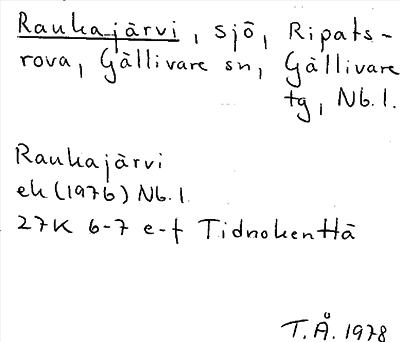 Raukajärvi, sjö, Ripats-
rova, Gällivare sn, Gällivare
tg, Nb. l.
Raukajärvi
ek (1976) Nb. l.
27K 6-7 e-f Tidnokenttä
T. Å. 1978